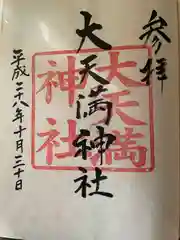 参拝
大天満神社
平成二十八年十月三十日
大天満
神社